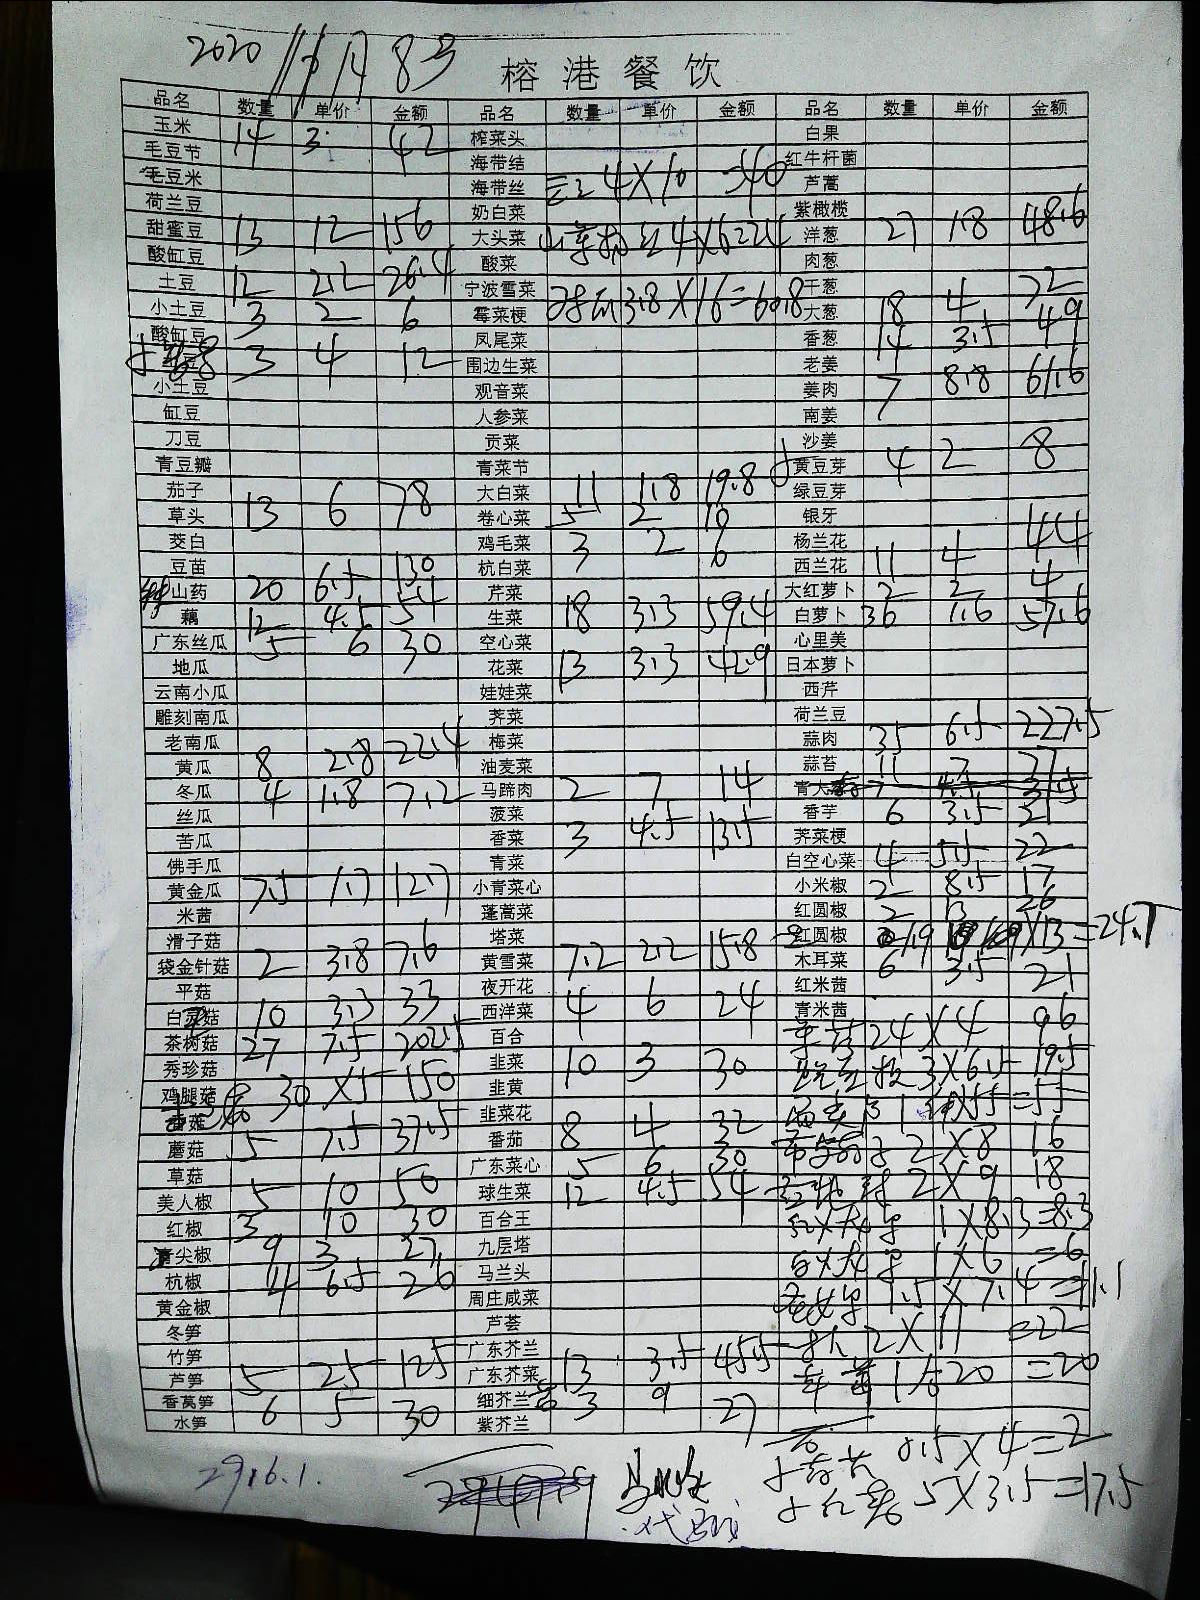 2020 11月8号
榕港餐饮
品名 数量 单价 金额 品名 数量 单价 金额 品名 数量 单价 金额
玉米 14 3 42 榨菜头 白果
毛豆节 海带结 红牛杆菌
毛豆米 海带丝 4X10 =40 芦蒿
荷兰豆 奶白菜 紫橄榄
甜蜜豆 13 12 156 大头菜 4X6=24 洋葱 27 1.8 48.6
酸缸豆 酸菜 肉葱
土豆 12 2.2 26.4 宁波雪菜 3.8X16=60.8 干葱
小土豆 3 2 6 霉菜梗 大葱 18 4 72
酸缸豆 凤尾菜 香葱 14 3.5 49
3 4 12 围边生菜 老姜
小土豆 观音菜 姜肉 7 8.8 61.6
缸豆 人参菜 南姜
刀豆 贡菜 沙姜
青豆瓣 青菜节 黄豆芽 4 2 8
茄子 大白菜 11 1.8 19.8 绿豆芽
草头 13 6 78 卷心菜 5 2 10 银牙
茭白 鸡毛菜 3 2 6 杨兰花
豆苗 杭白菜 西兰花 11 4 44
山药 20 6.5 130 芹菜 大红萝卜 2 2 4
藕 12 4.5 54 生菜 18 3.3 59.4 白萝卜 36 1.6 57.6
广东丝瓜 5 6 30 空心菜 心里美
地瓜 花菜 13 3.3 42.9 日本萝卜
云南小瓜 娃娃菜 西芹
雕刻南瓜 荠菜 荷兰豆
老南瓜 梅菜 蒜肉 35 6.5 227.5
黄瓜 8 2.8 22.4 油麦菜 蒜苔 11 7 77
冬瓜 4 1.8 7.2 马蹄肉 2 7 14 青大
丝瓜 菠菜 香芋 6 3.5 21
苦瓜 香菜 3 4.5 13.5 荠菜梗
佛手瓜 青菜 白空心菜 4 5.5 22
黄金瓜 7.5 1.7 12.7 小青菜心 小米椒 2 8.5 17
米茜 蓬蒿菜 红圆椒 2 13 26
滑子菇 塔菜 红圆椒 1.9 X13=24.7
袋金针菇 2 3.8 7.6 黄雪菜 7.2 2.2 15.8 木耳菜 6 3.5 21
平菇 夜开花 红米茜
白灵菇 10 3.3 33 西洋菜 4 6 24 青米茜
茶树菇 27 7.5 202.5 百合 24X4 96
秀珍菇 韭菜 10 3 30 3X6.5 19.5
鸡腿菇 30 X5 150 韭黄
韭菜花
蘑菇 5 7.5 37.5 番茄 8 4 32 2X8 16
草菇 广东菜心 5 6 30 2X9 18
美人椒 5 10 50 球生菜 12 4.5 54 1X8.3=8.3
红椒 3 10 30 百合王
青尖椒 9 3 27 九层塔 1X6 =6
杭椒 4 6.5 26 马兰头 1.5X7.4=11.1
黄金椒 周庄咸菜
冬笋 芦荟 2X11 =22
竹笋 广东芥兰
芦笋 5 25 125 广东芥菜 13 3.5 45.5 20 =20
香莴笋 细芥兰 3 9 27
水笋 6 5 30 紫芥兰
0.5X4=2
5X3.5=17.5
2916.1